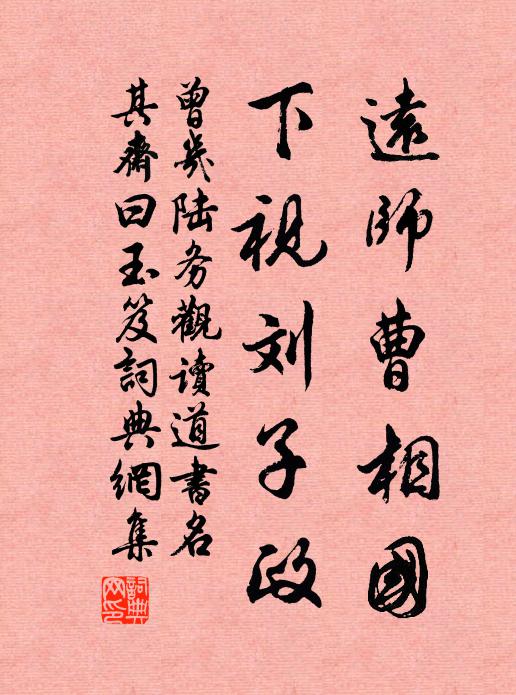 遠師曹相國
下視刘子政
曾幾陆务觀读道書名
其齋曰玉笈詞典網集
詞典网印